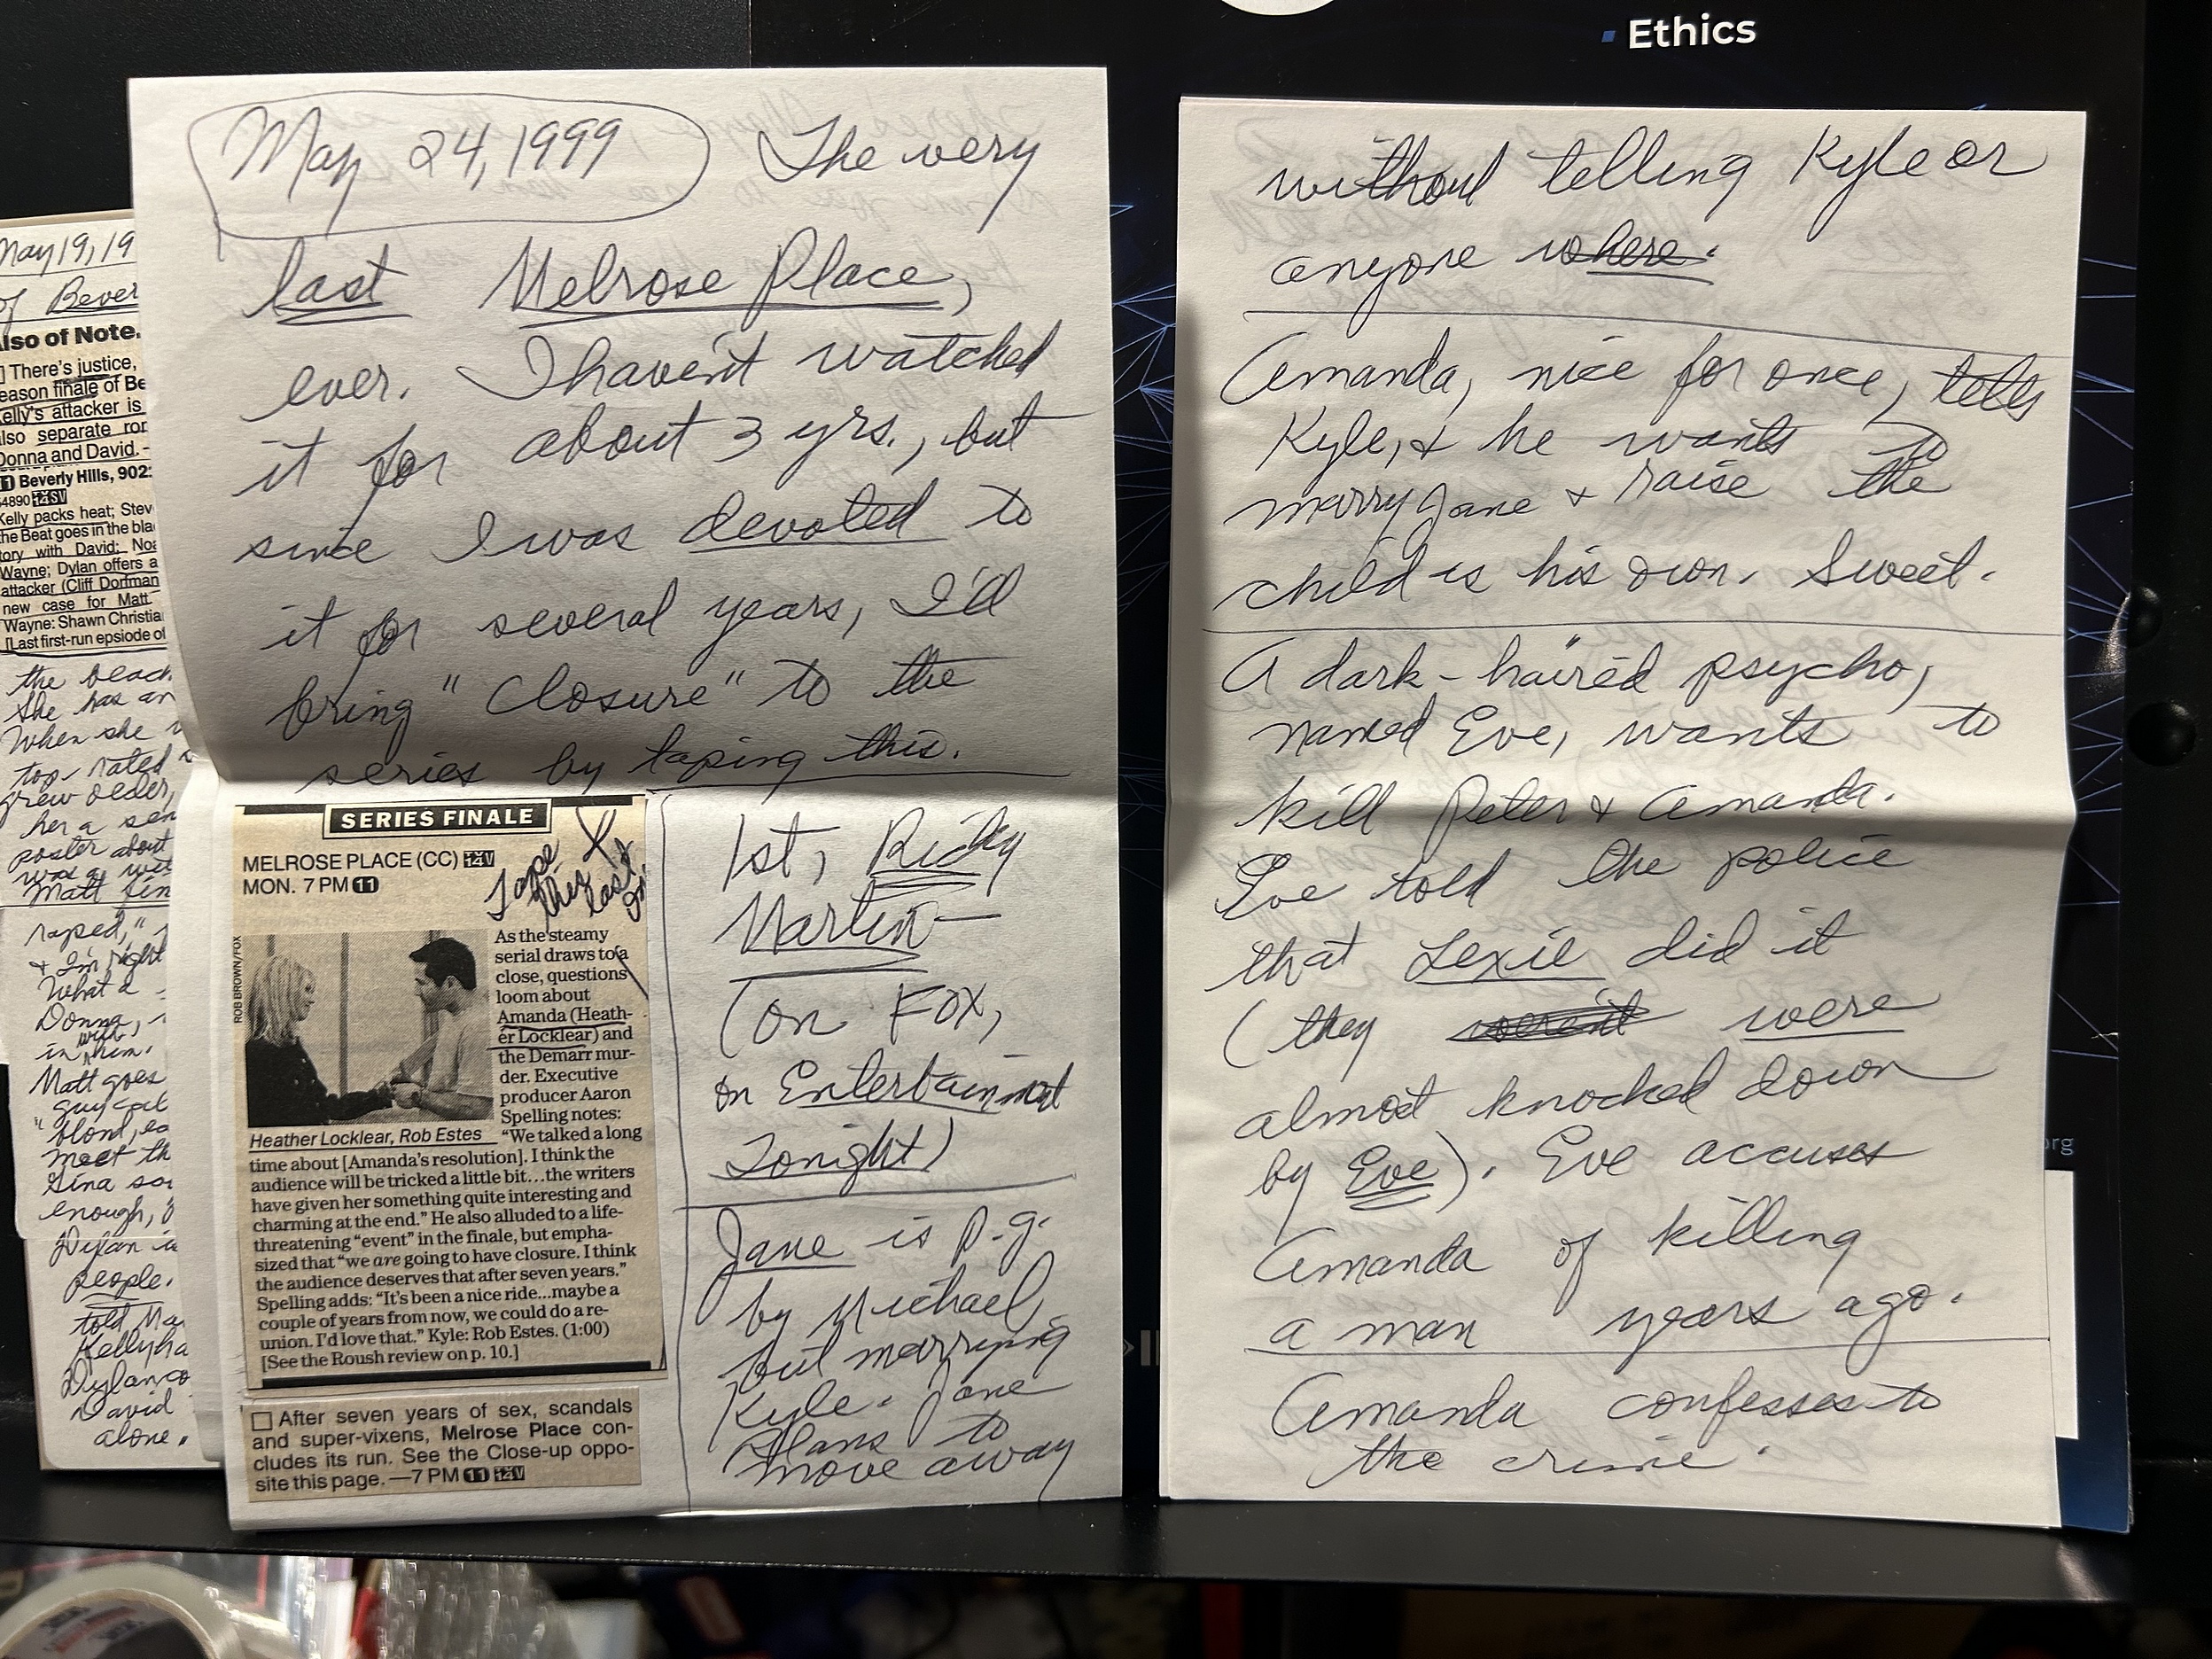 Ethics
May 19, 19
of Bever
lso of Note.
There's justice,
eason finale of Be
Kelly's attacker is
also separate ror
Donna and David. -
11 Beverly Hills, 902
54890 14 SV
Kelly packs heat; Stev
the Beat goes in the bla
tory with David; Noa
Wayne; Dylan offers a
attacker (Cliff Dorfman
new case for Matt.
Wayne: Shawn Christia
[Last first-run epsiode of
the beach
She has an
When she
top-rated
grew older,
her a sen
poster about
was a
Matt
raped,"
& I'm right
What a
Donna,
in him.
with
Matt goes
guy
"blond,
meet th
Gina
enough,
Dylan
people.
told Ma
Kelly ha
Dylan
David
alone.
May 24, 1999 The very
last Melrose Place,
ever. I haven't watched
it for about 3 yrs., but
since I was devoted to
it for several years, I'll
bring "closure" to the
series by taping this.
SERIES FINALE
MELROSE PLACE (CC) 14 V
MON. 7 PM 11
Tape
this
last
ROB BROWN/FOX
As the steamy
serial draws to a
close, questions
loom about
Amanda (Heath-
er Locklear) and
the Demarr mur-
der. Executive
producer Aaron
Spelling notes:
Heather Locklear, Rob Estes
"We talked a long
time about [Amanda's resolution]. I think the
audience will be tricked a little bit...the writers
have given her something quite interesting and
charming at the end." He also alluded to a life-
threatening "event" in the finale, but empha-
sized that "we are going to have closure. I think
the audience deserves that after seven years."
Spelling adds: "It's been a nice ride...maybe a
couple of years from now, we could do a re-
union. I'd love that." Kyle: Rob Estes. (1:00)
[See the Roush review on p. 10.]
After seven years of sex, scandals
and super-vixens, Melrose Place con-
cludes its run. See the Close-up oppo-
site this page.—7 PM 11 14 V
1st, Ricky
Martin—
(on FOX,
on Entertainment
Tonight)
Jane is p.g.
by Michael,
but marrying
Kyle. Jane
plans to
move away
without telling Kyle or
anyone where.
Amanda, nice for once, tells
Kyle, & he wants to
marry Jane & raise the
child is his own. Sweet.
A dark-haired psycho,
named Eve, wants to
kill Peter & Amanda.
Eve told the police
that Lexie did it
(they weren't were
almost knocked down
by Eve). Eve accuses
Amanda of killing
a man years ago.
Amanda confesses to
the crime.
org